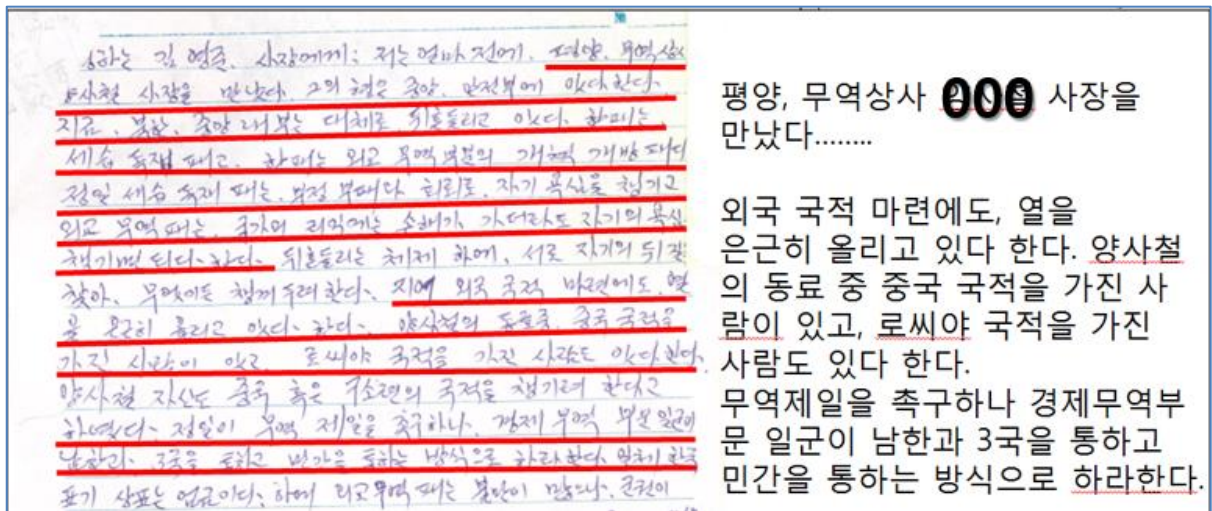 하는 김영준. 사장에게: 저는 얼마 전에. 평양. 무역상사
양사철 사장을 만났다. 그의 형은 중앙. 안전부에 있다 한다.
지금. 북한. 중앙 내부는 대체로. 뒤흔들리고 있다. 한패는.
세습 독재 패고. 한패는 외교 무역 부분의 개혁 개방 패다
정일 세습 독재 패는. 부정 부패다 회뢰로. 자기 욕심을 챙기고
외교 무역 패는. 국가의 리익에는 손해가 가더라도 자기의 욕심
챙기면 된다 한다. 뒤흔들리는 체제 하에. 서로 자기의 뒤길
찾아. 무엇이든 챙겨 두려 한다. 지어 외국 국적 마련에도. 열
을 은근히 올리고 있다 한다. 양사철의 동료중. 중국 국적을
가진 사람이 있고. 로씨야 국적을 가진 사람도 있다 한다.
양사철 자신도 중국 혹은 구소련의 국적을 챙기려 한다고
하였다. 정일이 무역 제일을 촉구하나. 경제 무역 부문 일군이
남한과. 3국을 통하고 민간을 통하는 방식으로 하라 한다. 일체 한국
표기 상표는 엄금이다. 하여 외교무역 패는 불만이 많으나.
평양, 무역상사 000 사장을
만났다........
외국 국적 마련에도, 열을
은근히 올리고 있다 한다. 양사철
의 동료 중 중국 국적을 가진 사
람이 있고, 로씨야 국적을 가진
사람도 있다 한다.
무역제일을 촉구하나 경제무역부
문 일군이 남한과 3국을 통하고
민간을 통하는 방식으로 하라한다.